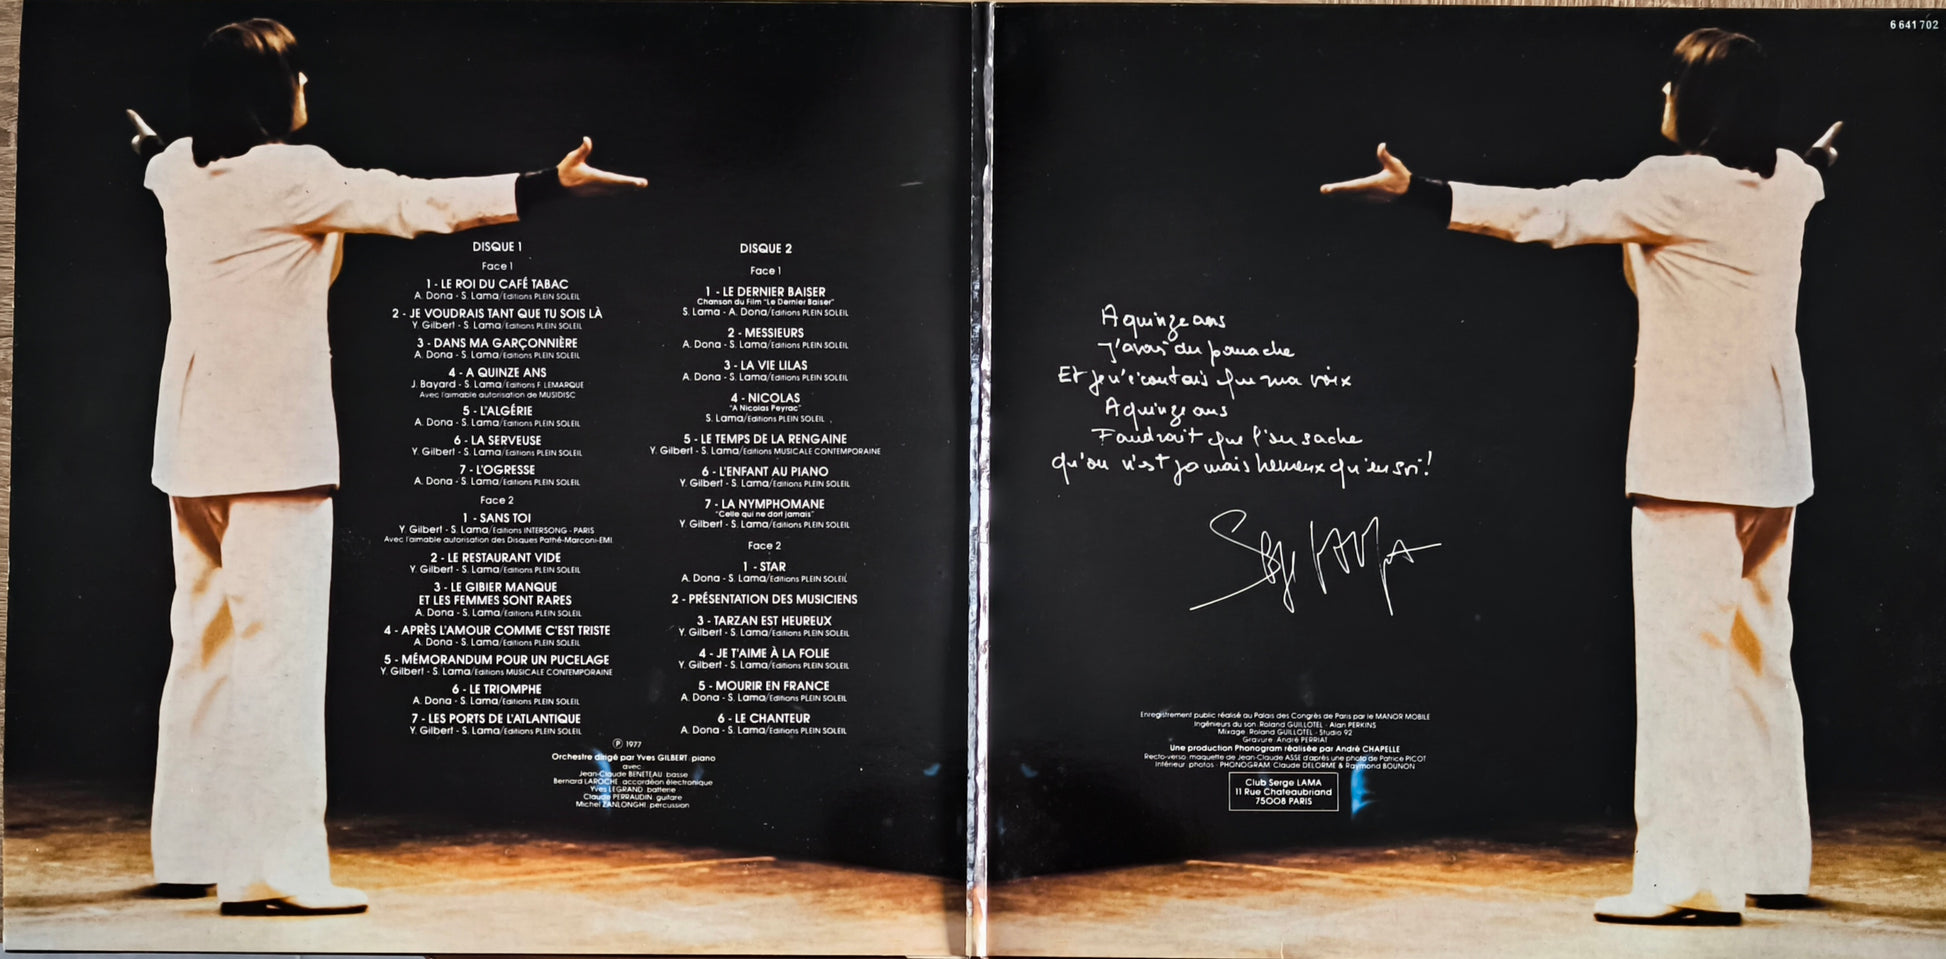 DISQUE 1
Face 1
1 - LE ROI DU CAFÉ TABAC
A. Dona - S. Lama/Editions PLEIN SOLEIL
2 - JE VOUDRAIS TANT QUE TU SOIS LÀ
Y. Gilbert - S. Lama/Editions PLEIN SOLEIL
3 - DANS MA GARÇONNIÈRE
A. Dona - S. Lama/Editions PLEIN SOLEIL
4 - A QUINZE ANS
J. Bayard - S. Lama/Editions F. LEMARQUE
Avec l'aimable autorisation de MUSIDISC
5 - L'ALGÉRIE
A. Dona - S. Lama/Editions PLEIN SOLEIL
6 - LA SERVEUSE
Y. Gilbert - S. Lama/Editions PLEIN SOLEIL
7 - L'OGRESSE
A. Dona - S. Lama/Editions PLEIN SOLEIL
Face 2
1 - SANS TOI
Y. Gilbert - S. Lama/Editions INTERSONG - PARIS
Avec l'aimable autorisation des Disques Pathé-Marconi-EMI
2 - LE RESTAURANT VIDE
Y. Gilbert - S. Lama/Editions PLEIN SOLEIL
3 - LE GIBIER MANQUE
ET LES FEMMES SONT RARES
A. Dona - S. Lama/Editions PLEIN SOLEIL
4 - APRÈS L'AMOUR COMME C'EST TRISTE
A. Dona - S. Lama/Editions PLEIN SOLEIL
5 - MÉMORANDUM POUR UN PUCELAGE
Y. Gilbert - S. Lama/Editions MUSICALE CONTEMPORAINE
6 - LE TRIOMPHE
A. Dona - S. Lama/Editions PLEIN SOLEIL
7 - LES PORTS DE L'ATLANTIQUE
Y. Gilbert - S. Lama/Editions PLEIN SOLEIL
DISQUE 2
Face 1
1 - LE DERNIER BAISER
Chanson du Film "Le Dernier Baiser"
S. Lama - A. Dona/Editions PLEIN SOLEIL
2 - MESSIEURS
A. Dona - S. Lama/Editions PLEIN SOLEIL
3 - LA VIE LILAS
A. Dona - S. Lama/Editions PLEIN SOLEIL
4 - NICOLAS
"A Nicolas Peyrac"
S. Lama/Editions PLEIN SOLEIL
5 - LE TEMPS DE LA RENGAINE
Y. Gilbert - S. Lama/Editions MUSICALE CONTEMPORAINE
6 - L'ENFANT AU PIANO
Y. Gilbert - S. Lama/Editions PLEIN SOLEIL
7 - LA NYMPHOMANE
"Celle qui ne dort jamais"
Y. Gilbert - S. Lama/Editions PLEIN SOLEIL
Face 2
1 - STAR
A. Dona - S. Lama/Editions PLEIN SOLEIL
2 - PRÉSENTATION DES MUSICIENS
3 - TARZAN EST HEUREUX
Y. Gilbert - S. Lama/Editions PLEIN SOLEIL
4 - JE T'AIME À LA FOLIE
Y. Gilbert - S. Lama/Editions PLEIN SOLEIL
5 - MOURIR EN FRANCE
A. Dona - S. Lama/Editions PLEIN SOLEIL
6 - LE CHANTEUR
A. Dona - S. Lama/Editions PLEIN SOLEIL
Ⓟ 1977
Orchestre dirigé par Yves GILBERT : piano
avec
Jean-Claude BENETEAU : basse
Bernard LAROCHE : accordéon électronique
Yves LEGRAND : batterie
Claude PERRAUDIN : guitare
Michel ZANLONGHI : percussion
6641702
A quinze ans
J'avais du panache
Et je n'écoutais que ma voix
A quinze ans
Faudrait que l'on sache
qu'on n'est jamais heureux qu'en soi !
Serge LAMA
Enregistrement public réalisé au Palais des Congrès de Paris par le MANOR MOBILE
Ingénieurs du son : Roland GUILLOTEL - Alan PERKINS
Mixage : Roland GUILLOTEL - Studio 92
Gravure : André PERRIAT
Une production Phonogram réalisée par André CHAPELLE
Recto-verso : maquette de Jean-Claude ASSE d'après une photo de Patrice PICOT
Intérieur : photos - PHONOGRAM Claude DELORME & Raymond BOUNON
Club Serge LAMA
11 Rue Chateaubriand
75008 PARIS